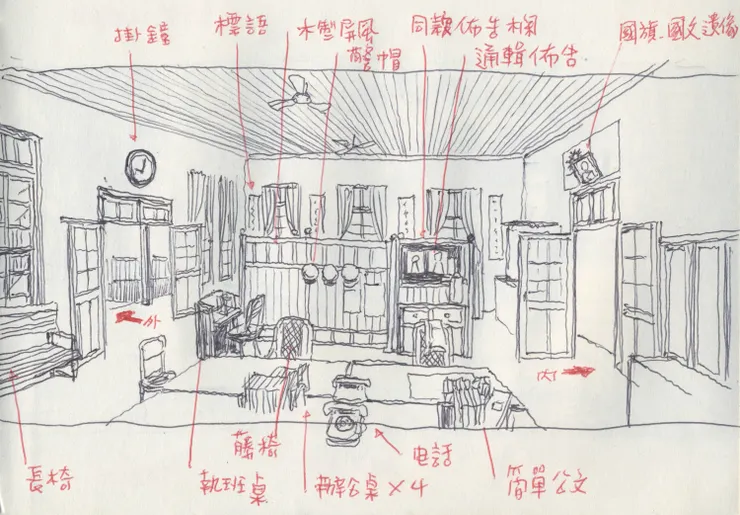 掛鐘
標語
木製屏風
警帽
同款佈告欄
通輯佈告
國旗.國父遺像
外
內
長椅
執班桌
藤椅
辦公桌×4
电話
簡單公文